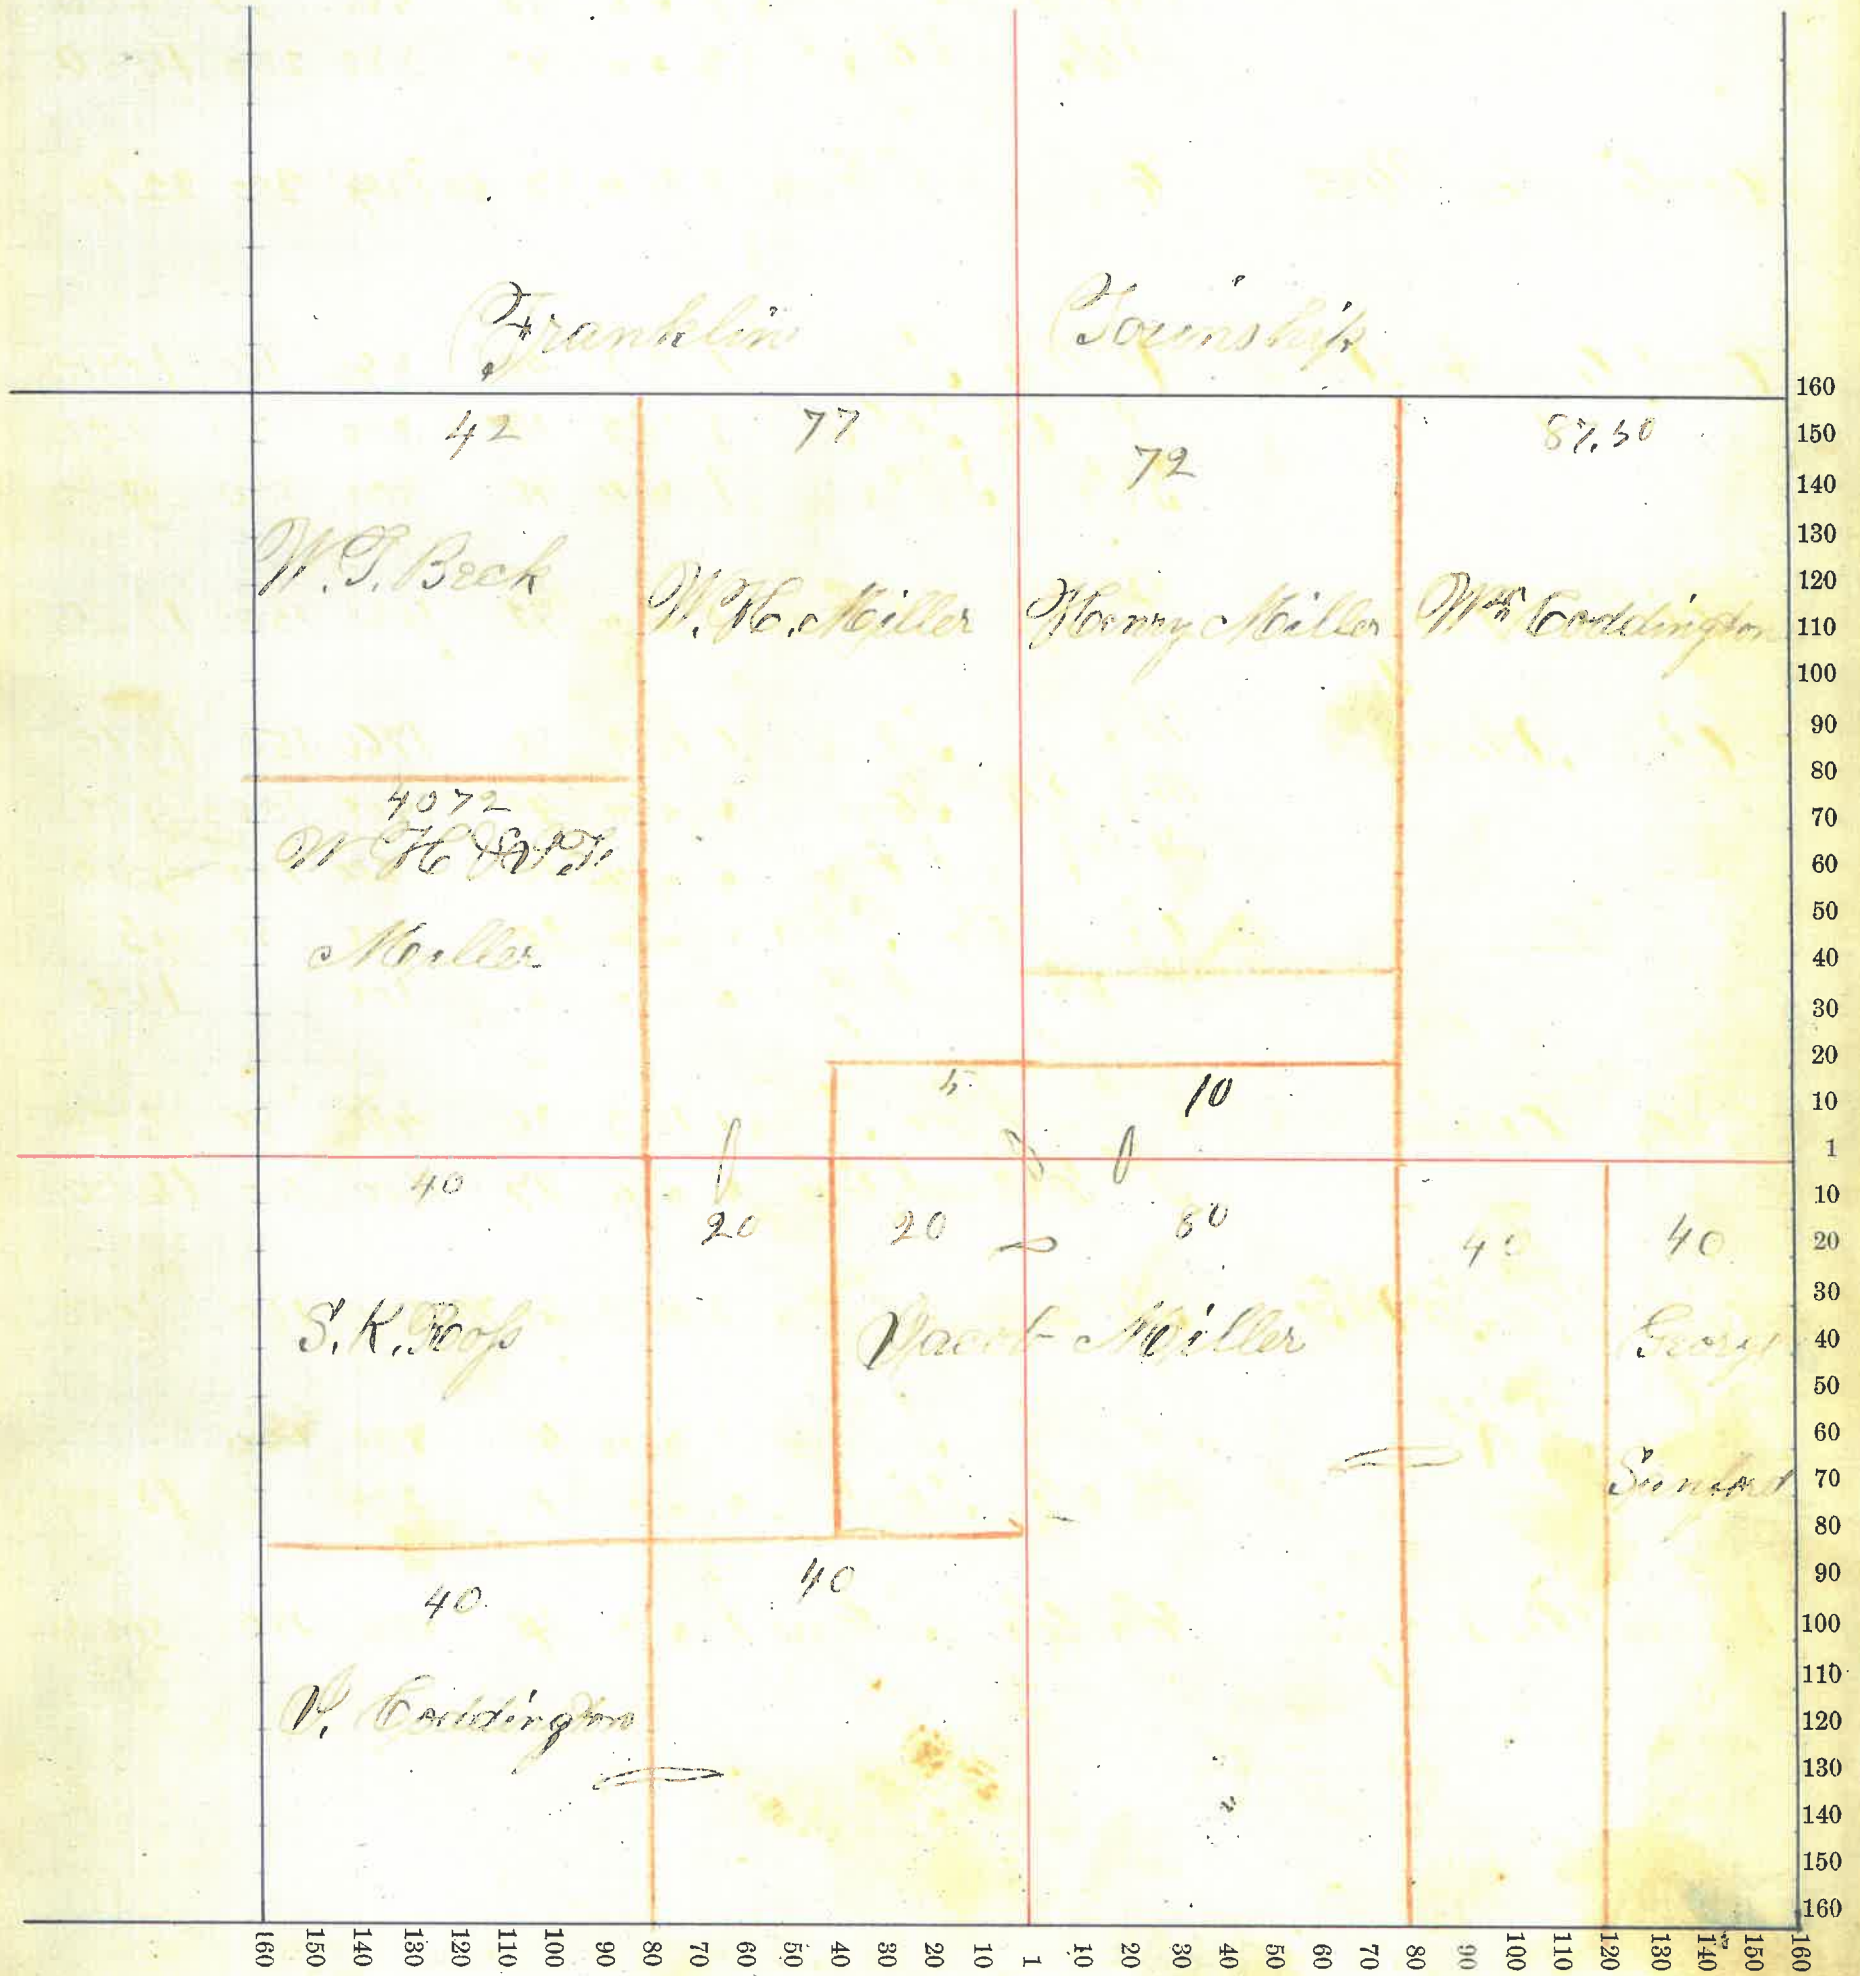 Franklin Township
42
77
72
87.50
W. T. Beck
W. H. Miller
Henry Miller
Wm Coddington
4072
W H & W. T.
Miller
5
10
40
20
20
80
40
40
S. K. Ross
Jacob Miller
George
Sanford
40
40
Coddington
160
150
140
130
120
110
100
90
80
70
60
50
40
30
20
10
1
10
20
30
40
50
60
70
80
90
100
110
120
130
140
150
160
160 150 140 130 120 110 100 90 80 70 60 50 40 30 20 10 1 10 20 30 40 50 60 70 80 90 100 110 120 130 140 150 160